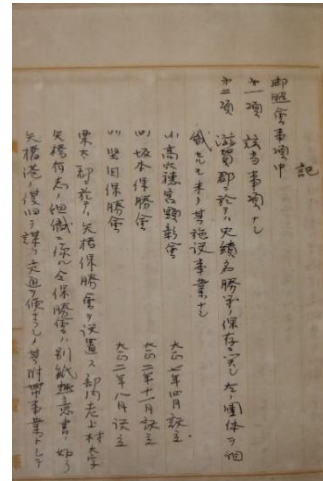 記
御照会事項中
第一項 該当事項ナシ
第二項 滋賀郡ニ於テハ史蹟名勝等ノ保存ニ関シ左ノ団体ヲ組
織セルモ未ダ其施設事業ナシ
(イ) 高穴穂宮顕彰会 大正七年四月設立
(ロ) 坂本保勝会 大正二年十一月設立
(ハ) 堅田保勝会 大正二年八月設立
栗太郡ニ於テハ矢橋保勝会ヲ設置ス郡内老上村大字
矢橋有志ノ組織ニ係ル全保勝会ハ別紙趣意書ノ如ク
矢橋港ノ復旧ヲ謀リ交通ヲ便ナラシメ其附帯事業トシテ